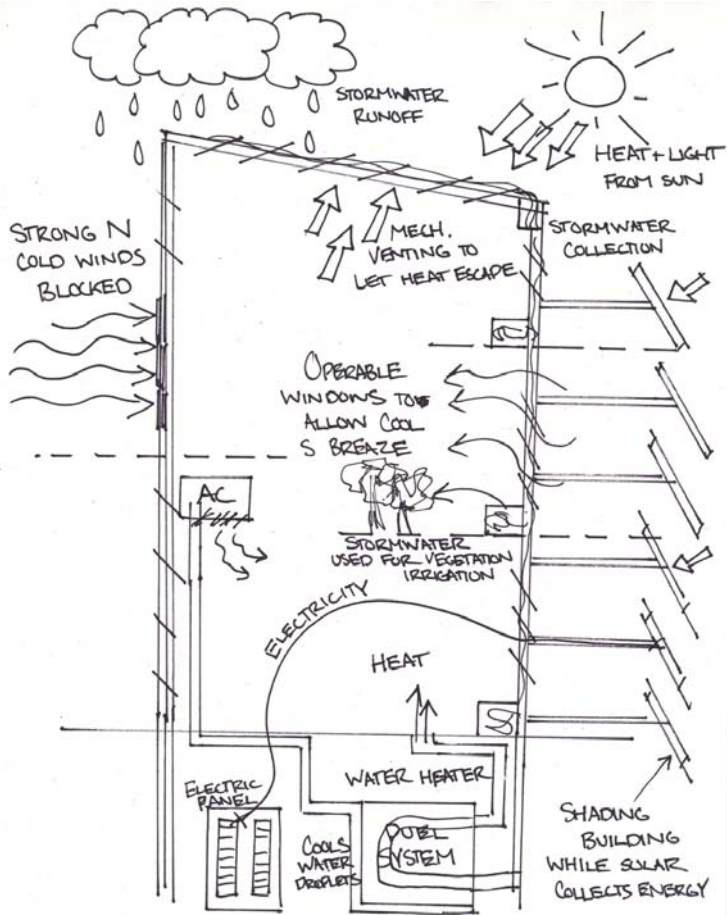 STORMWATER
RUNOFF
HEAT + LIGHT
FROM SUN
STRONG N
COLD WINDS
BLOCKED
MECH.
VENTING TO
LET HEAT ESCAPE
STORMWATER
COLLECTION
OPERABLE
WINDOWS TO
ALLOW COOL
S BREAZE
AC
STORMWATER
USED FOR VEGETATION
IRRIGATION
ELECTRICITY
HEAT
ELECTRIC
PANEL
WATER HEATER
COOLS
WATER
DROPLETS
DUEL
SYSTEM
SHADING
BUILDING
WHILE SOLAR
COLLECTS ENERGY